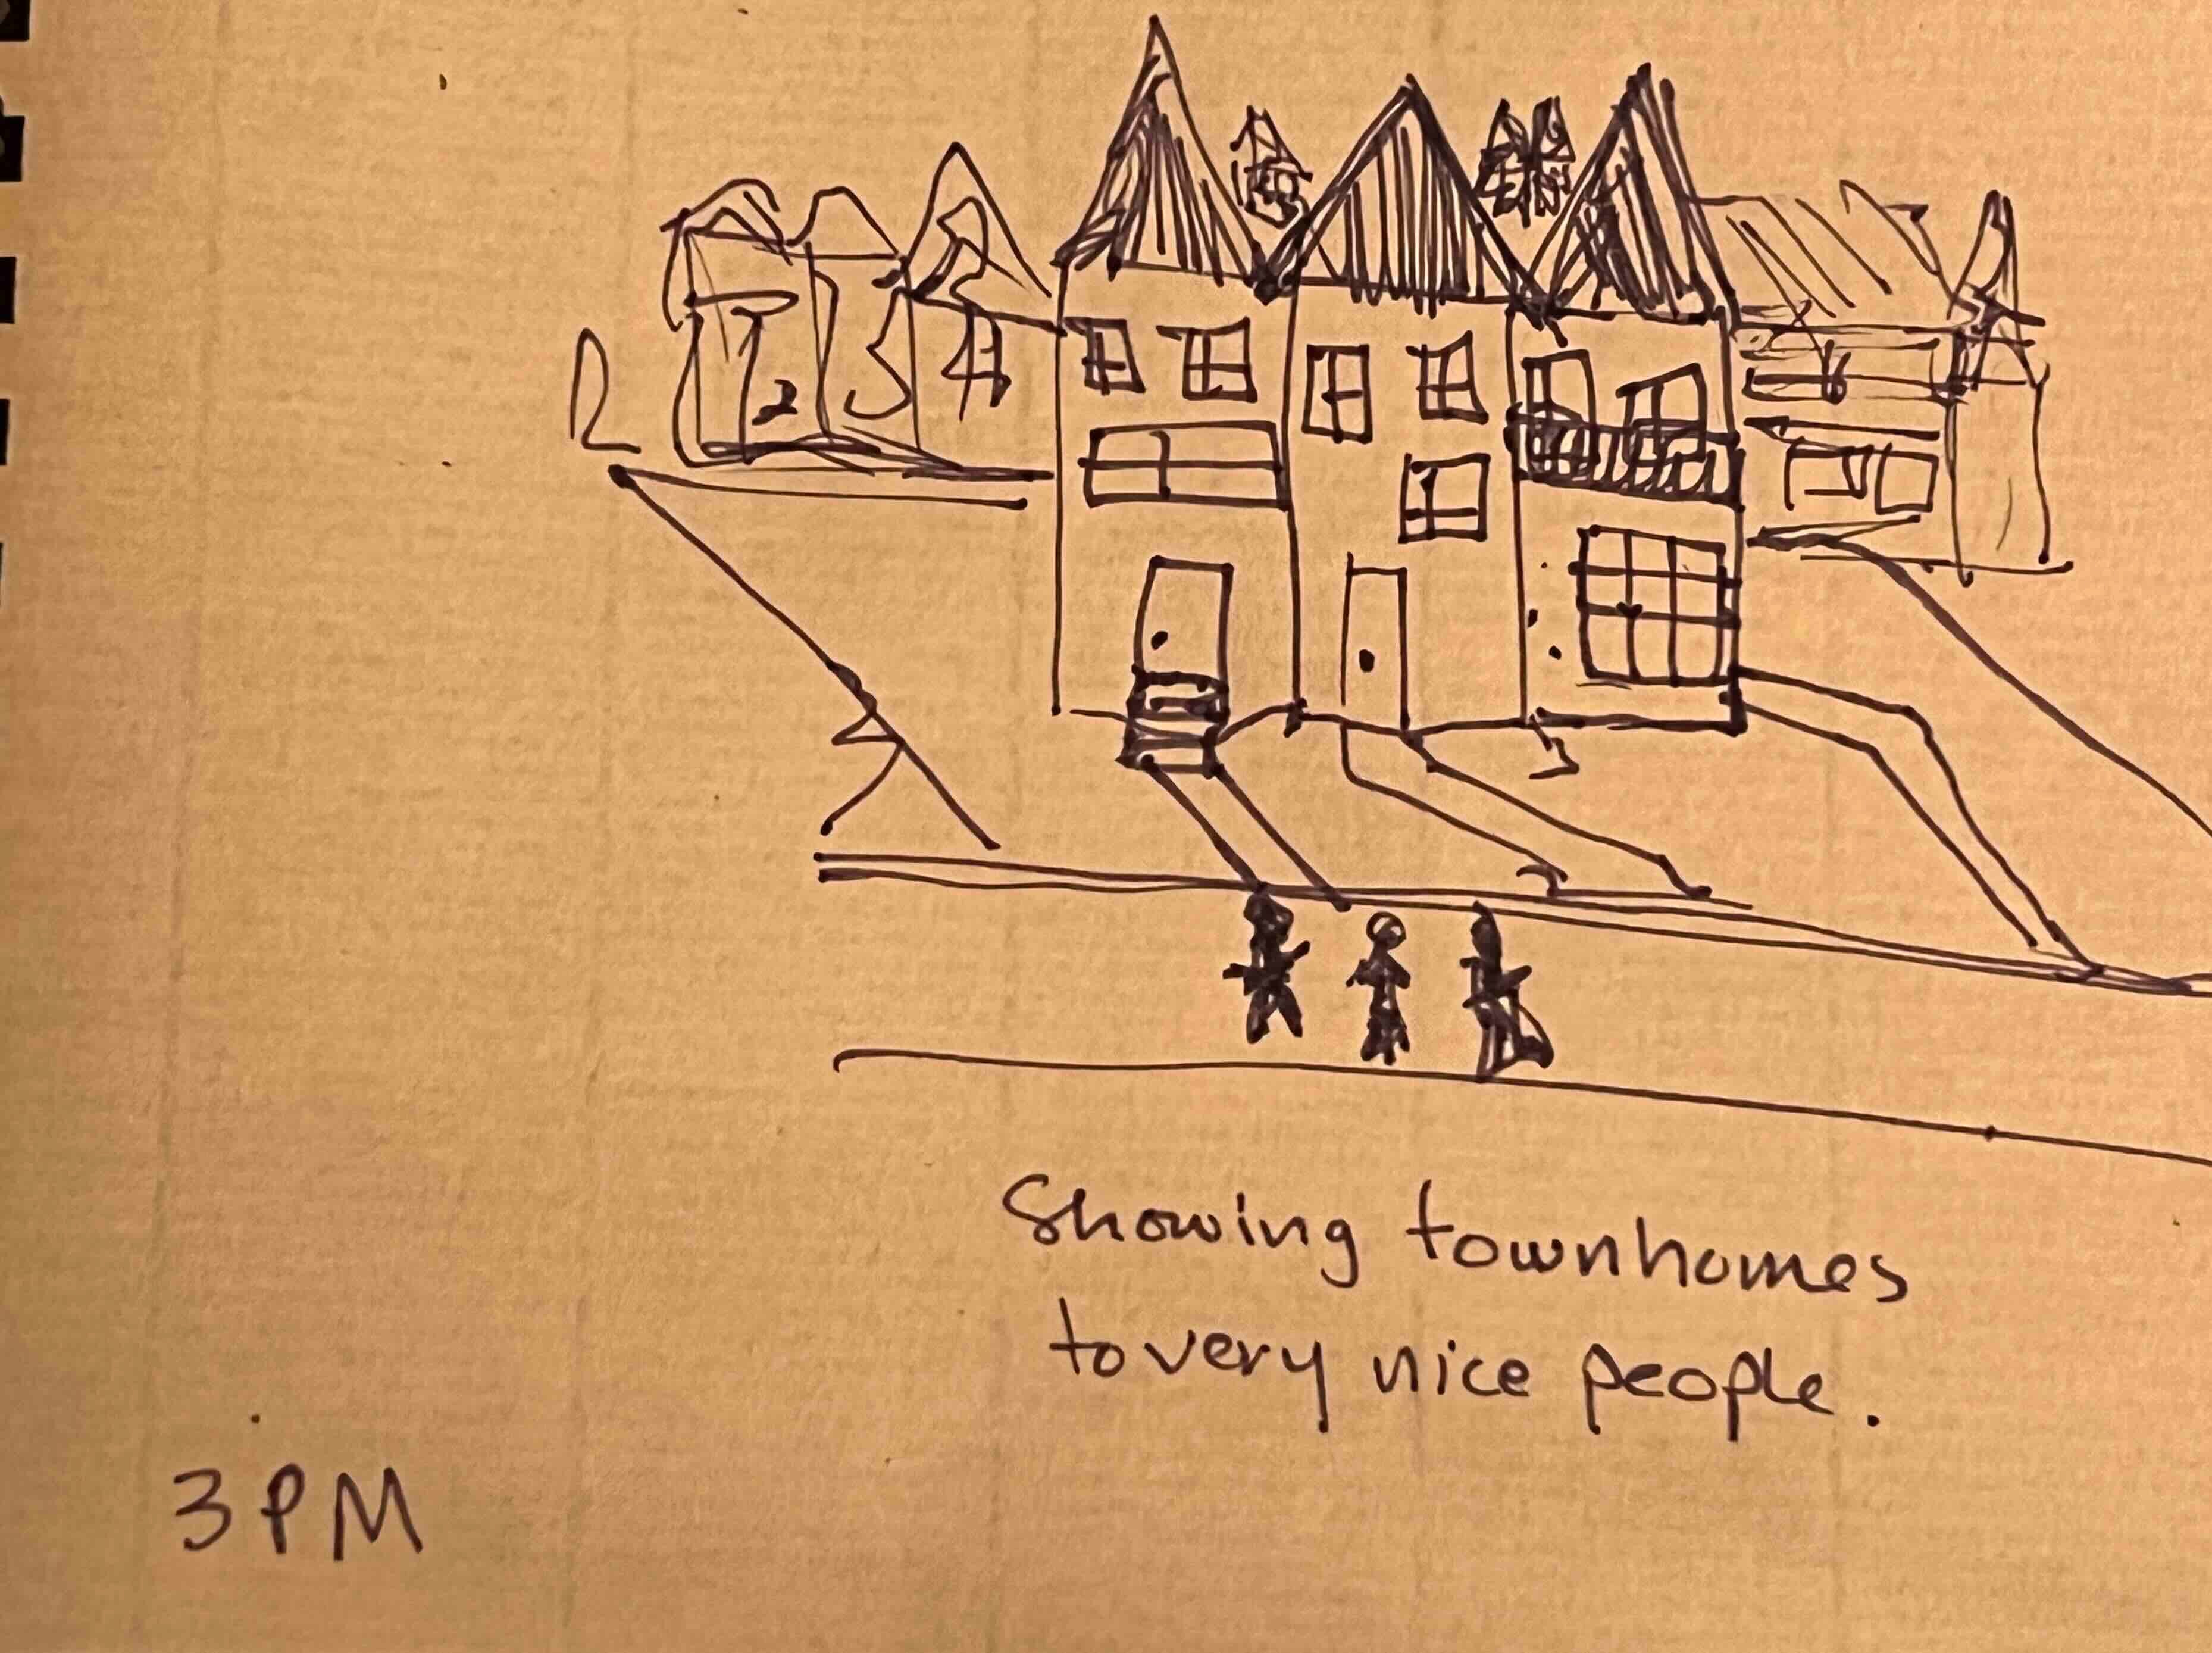 2 3 4
Showing townhomes
to very nice people.
3 PM